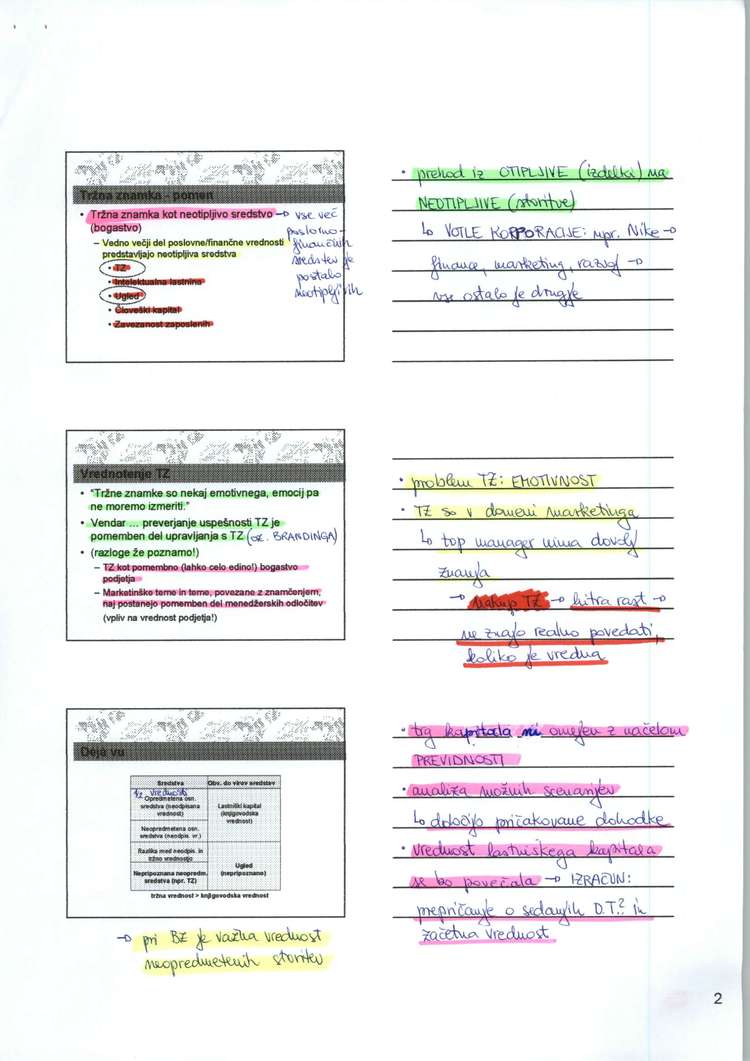 Tržna znamka - pomen
• Tržna znamka kot neotipljivo sredstvo → vse več
(bogastvo)
poslovno-
– Vedno večji del poslovne/finančne vrednosti
finančnih
predstavljajo neotipljiva sredstva
sredstev je
• TZ
postalo
• Intelektualna lastnina
neotipljivih
• Ugled
• Človeški kapital
• Zavezanost zaposlenih
• prehod iz OTIPLJIVE (izdelki) na
NEOTIPLJIVE (storitve)
↳ VOTLE KORPORACIJE: npr. Nike →
finance, marketing, razvoj →
vse ostalo je drugje
Vrednotenje TZ
• "Tržne znamke so nekaj emotivnega, emocij pa
ne moremo izmeriti."
• Vendar ... preverjanje uspešnosti TZ je
pomemben del upravljanja s TZ (oz. BRANDINGA)
• (razloge že poznamo!)
– TZ kot pomembno (lahko celo edino!) bogastvo
podjetja
– Marketinško teme in teme, povezane z znamčenjem,
naj postanejo pomemben del menedžerskih odločitev
(vpliv na vrednost podjetja!)
• problem TZ: EMOTIVNOST
• TZ so v domeni marketinga
↳ top manager nima dovolj
znanja
→ nakup TZ → hitra rast →
ne znajo realno povedati,
koliko je vredna
Deja vu
Sredstva
Obv. do virov sredstev
vrednosti
Opredmetena osn.
sredstva (neodpisana
vrednost)
Lastniški kapital
(knjigovodska
vrednost)
Neopredmetena osn.
sredstva (neodpis. vr.)
Razlika med neodpis. in
tržno vrednostjo
Ugled
(nepripoznano)
Nepripoznana neopredm.
sredstva (npr. TZ)
tržna vrednost > knjigovodska vrednost
→ pri BZ je važna vrednost
neopredmetenih storitev
• trg kapitala ni omejen z načelom
PREVIDNOSTI
• analiza možnih scenarijev
↳ določijo pričakovane dohodke
• vrednost lastniškega kapitala
se bo povečala → IZRAČUN:
prepričanje o sedanjih D.T.? in
začetna vrednost
2